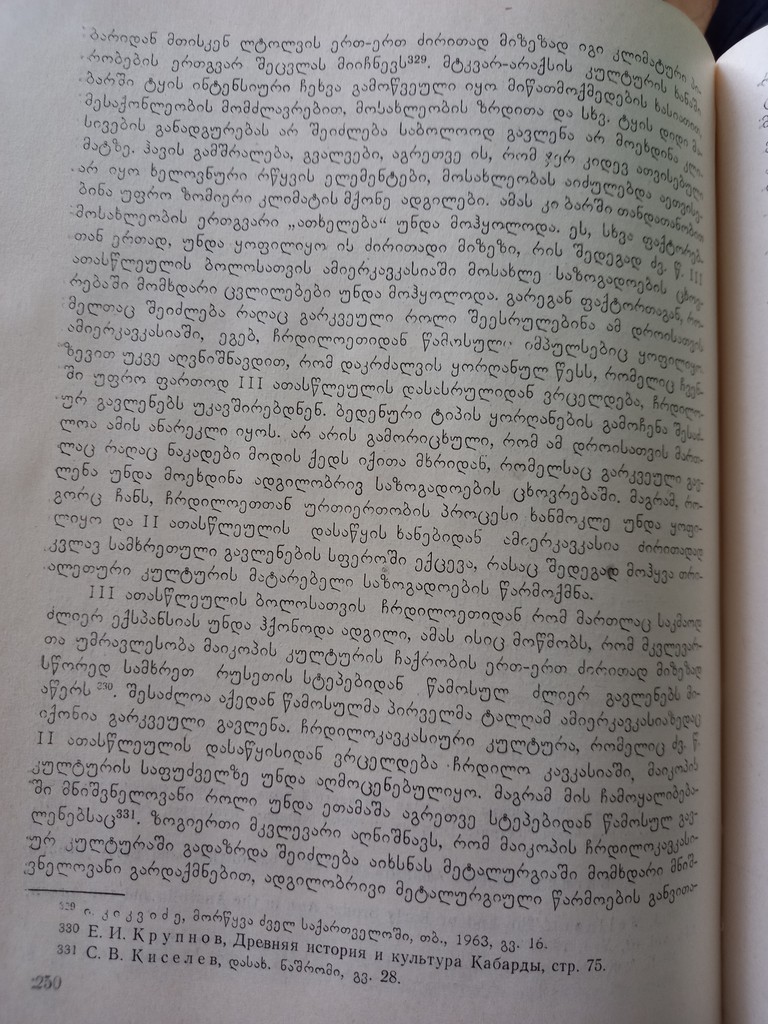 ბარიდან მთისკენ ლტოლვის ერთ-ერთ ძირითად მიზეზად იგი კლიმატური პი-
რობების ერთგვარ შეცვლას მიიჩნევს³²⁹. მტკვარ-არაქსის კულტურის ხანაში
ბარში ტყის ინტენსიური ჩეხვა გამოწვეული იყო მიწათმოქმედების ხასიათით,
მესაქონლეობის მომძლავრებით, მოსახლეობის ზრდითა და სხვ. ტყის დიდი მა-
სივების განადგურებას არ შეიძლება საბოლოოდ გავლენა არ მოეხდინა კლი-
მატზე. ჰავის გამშრალება, გვალვები, აგრეთვე ის, რომ ჯერ კიდევ ათვისებული
არ იყო ხელოვნური რწყვის ელემენტები, მოსახლეობას აიძულებდა აეთვისე-
ბინა უფრო ზომიერი კლიმატის მქონე ადგილები. ამას კი ბარში თანდათანობით
მოსახლეობის ერთგვარი „ათხელება“ უნდა მოჰყოლოდა. ეს, სხვა ფაქტორებ-
თან ერთად, უნდა ყოფილიყო ის ძირითადი მიზეზი, რის შედეგად ძვ. წ. III
ათასწლეულის ბოლოსათვის ამიერკავკასიაში მოსახლე საზოგადოების ცხოვ-
რებაში მომხდარი ცვლილებები უნდა მოჰყოლოდა. გარეგან ფაქტორთაგან, რო-
მელთაც შეიძლება რაღაც გარკვეული როლი შეესრულებინა ამ დროისათვის
ამიერკავკასიაში, ეგებ, ჩრდილოეთიდან წამოსული იმპულსებიც ყოფილიყო.
ზევით უკვე აღვნიშნავდით, რომ დაკრძალვის ყორღანულ წესს, რომელიც ჩვენ-
ში უფრო ფართოდ III ათასწლეულის დასასრულიდან ვრცელდება, ჩრდილო-
ურ გავლენებს უკავშირებდნენ. ბედენური ტიპის ყორღანების გამოჩენა შესაძ-
ლოა ამის ანარეკლი იყოს. არ არის გამორიცხული, რომ ამ დროისათვის მართ-
ლაც რაღაც ნაკადები მოდის ქედს იქითა მხრიდან, რომელსაც გარკვეული გავ-
ლენა უნდა მოეხდინა ადგილობრივ საზოგადოების ცხოვრებაში. მაგრამ, რო-
გორც ჩანს, ჩრდილოეთთან ურთიერთობის პროცესი ხანმოკლე უნდა ყოფი-
ლიყო და II ათასწლეულის დასაწყის ხანებიდან ამიერკავკასია ძირითადად
კვლავ სამხრეთული გავლენების სფეროში ექცევა, რასაც შედეგად მოჰყვა თრი-
ალეთური კულტურის მატარებელი საზოგადოების წარმოქმნა.
III ათასწლეულის ბოლოსათვის ჩრდილოეთიდან რომ მართლაც საკმაოდ
ძლიერ ექსპანსიას უნდა ჰქონოდა ადგილი, ამას ისიც მოწმობს, რომ მკვლევარ-
თა უმრავლესობა მაიკოპის კულტურის ჩაქრობის ერთ-ერთ ძირითად მიზეზად
სწორედ სამხრეთ რუსეთის სტეპებიდან წამოსულ ძლიერ გავლენებს მი-
აწერს ²³⁰. შესაძლოა აქედან წამოსულმა პირველმა ტალღამ ამიერკავკასიაზედაც
იქონია გარკვეული გავლენა. ჩრდილოკავკასიური კულტურა, რომელიც ძვ. წ.
II ათასწლეულის დასაწყისიდან ვრცელდება ჩრდილო კავკასიაში, მაიკოპის
კულტურის საფუძველზე უნდა აღმოცენებულიყო. მაგრამ მის ჩამოყალიბება-
ში მნიშვნელოვანი როლი უნდა ეთამაშა აგრეთვე სტეპებიდან წამოსულ გავ-
ლენებსაც³³¹. ზოგიერთი მკვლევარი აღნიშნავს, რომ მაიკოპის ჩრდილოკავკასი-
ურ კულტურაში გადაზრდა შეიძლება აიხსნას მეტალურგიაში მომხდარი მნიშ-
ვნელოვანი გარდაქმნებით, ადგილობრივი მეტალურგიული წარმოების განვითა-
³²⁹ ი. კიკვიძე, მორწყვა ძველ საქართველოში, თბ., 1963, გვ. 16.
³³⁰ Е. И. Крупнов, Древняя история и культура Кабарды, стр. 75.
³³¹ С. В. Киселев, დასახ. ნაშრომი, გვ. 28.
250